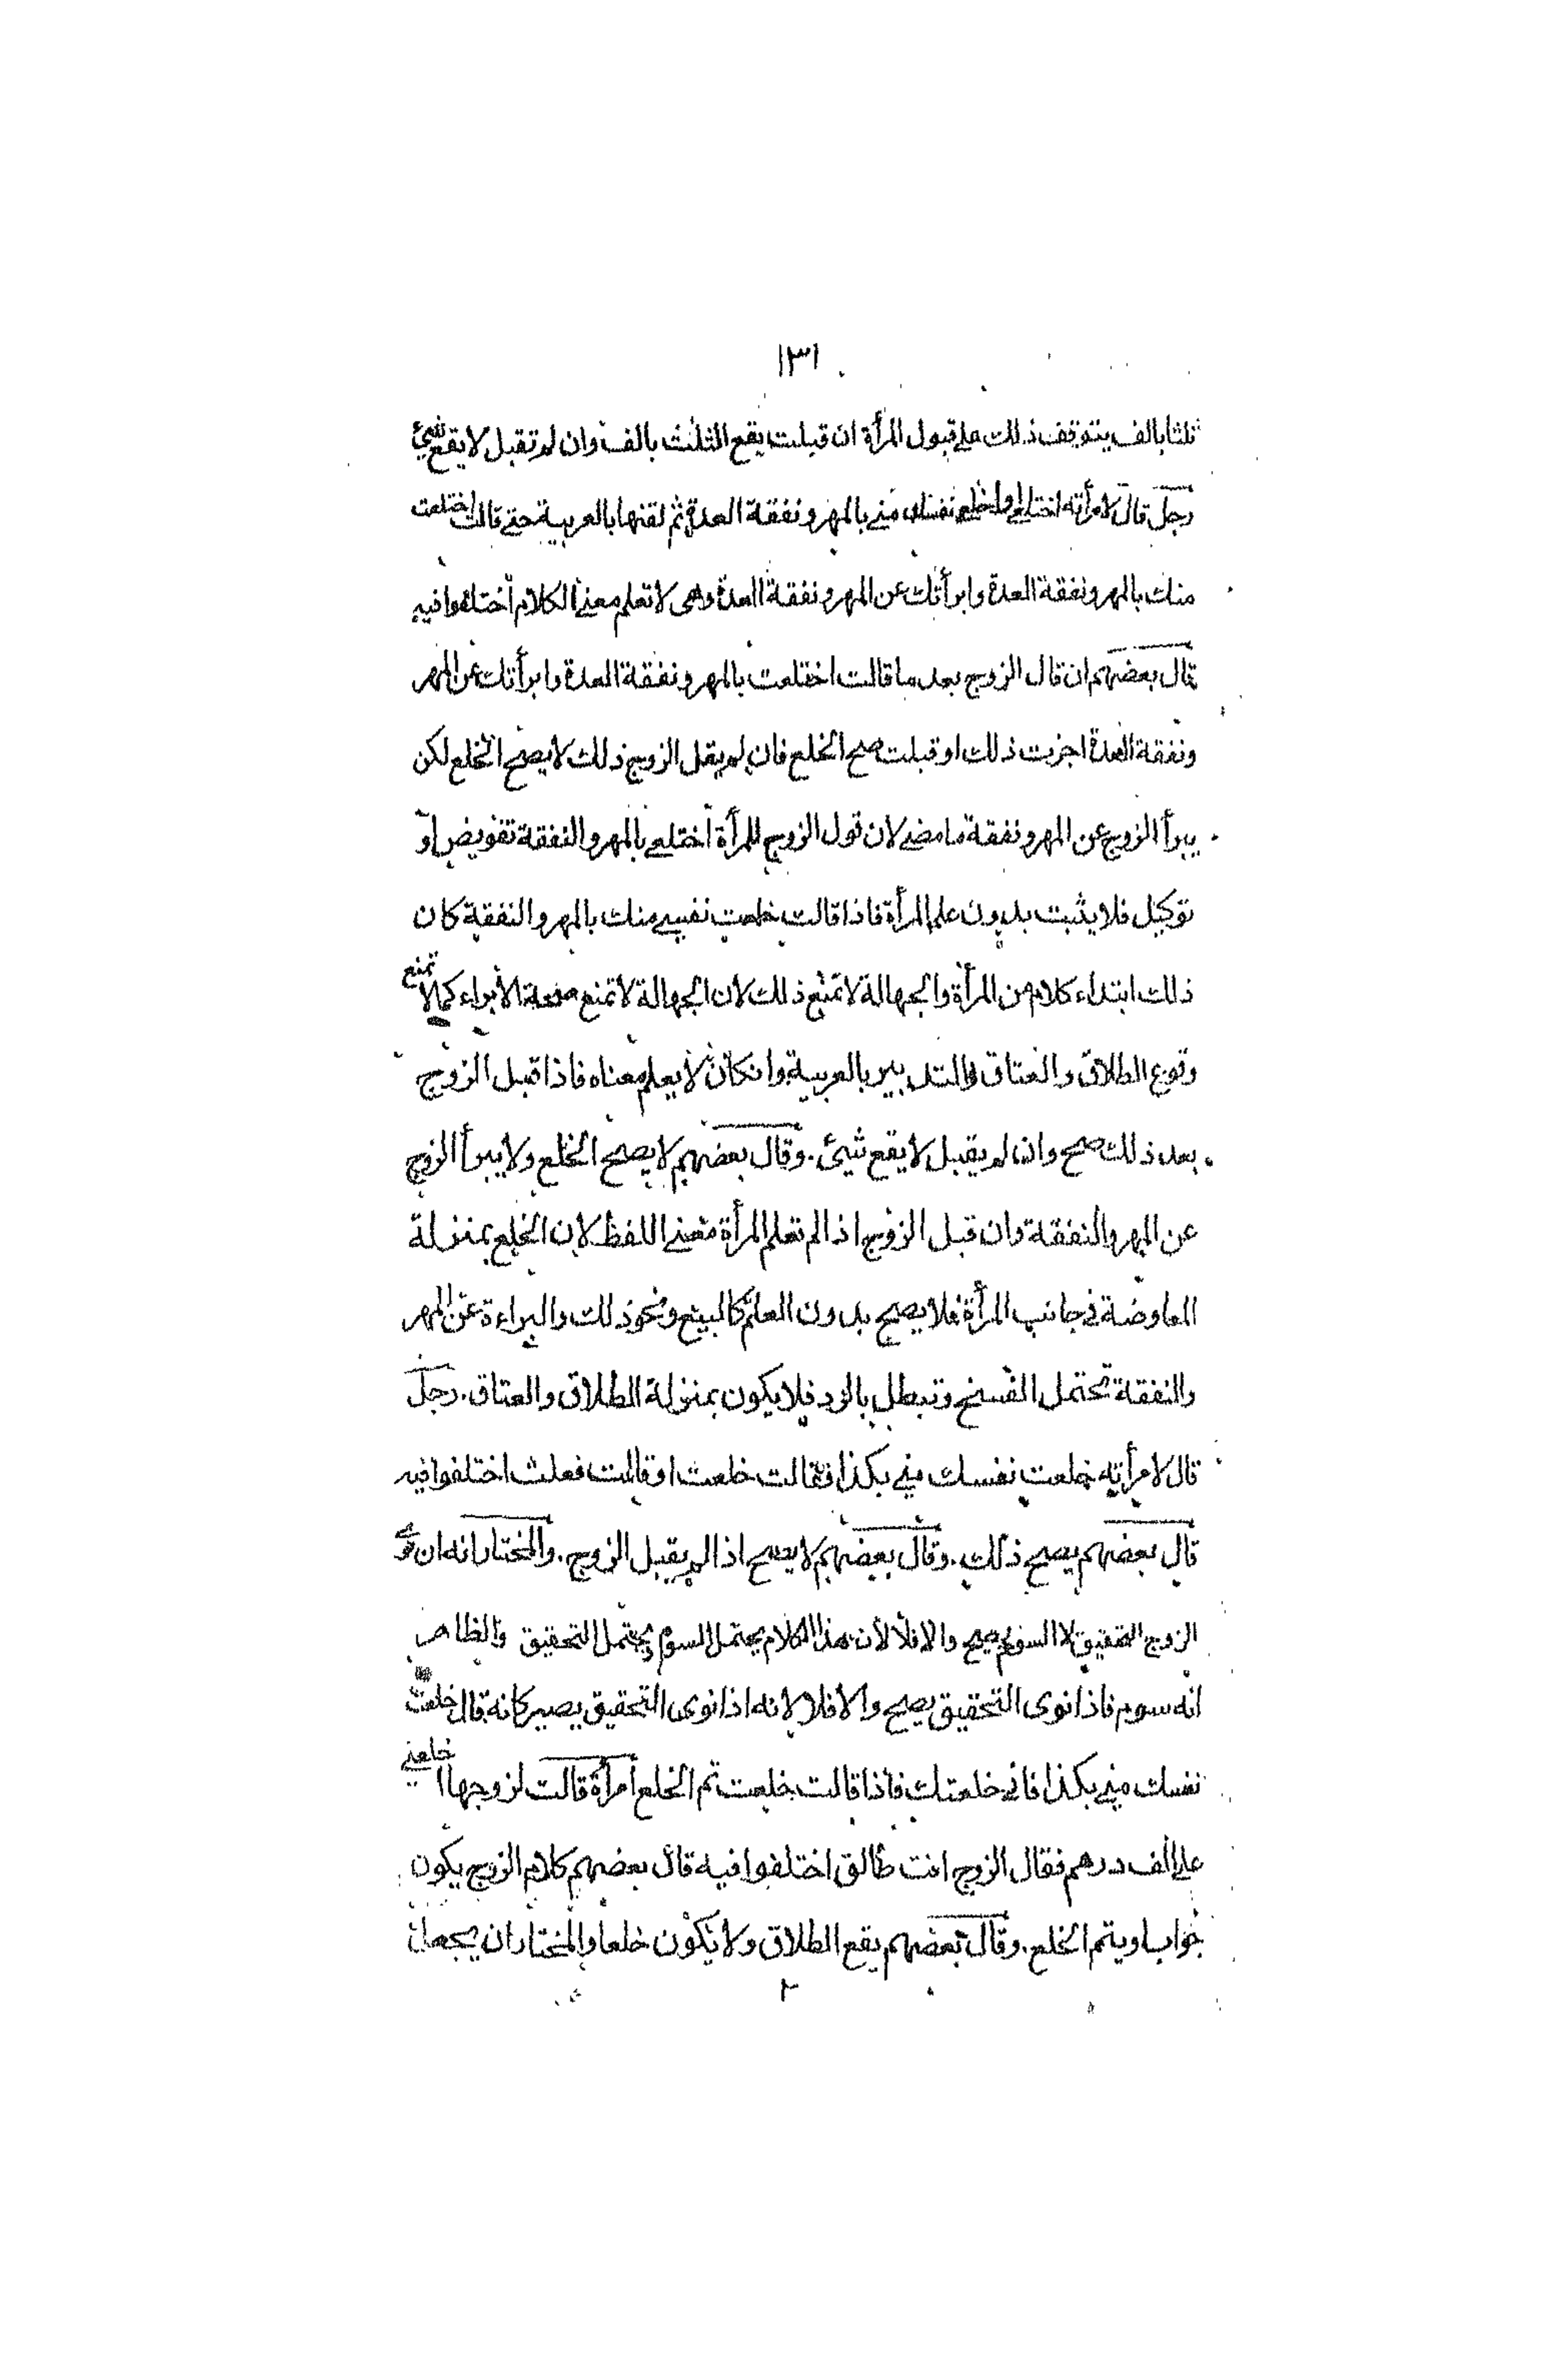 ١٣١
ثلثا بالف يتوقف ذلك على قبول المرأة ان قبلت يقع الثلث بالف وان لم تقبل لا يقع شيئ
رجل قال لامرأته اختلعى او اخلعى نفسك منى بالمهر ونفقة العدة ثم لقنها بالعربية حتى قالت اختلعت
منك بالمهر ونفقة العدة وابرأتك عن المهر ونفقة العدة وهى لا تعلم معنى الكلام اختلفوا فيه
قال بعضهم ان قال الزوج بعد ما قالت اختلعت بالمهر ونفقة العدة وابرأتك عن المهر
ونفقة العدة اجزت ذلك او قبلت صح الخلع فان لم يقل الزوج ذلك لا يصح الخلع لكن
يبرأ الزوج عن المهر ونفقة ما مضى لان قول الزوج للمرأة اختلعى بالمهر والنفقة تفويض او
توكيل فلا يثبت بدون علم المرأة فاذا قالت خلعت نفسى منك بالمهر والنفقة كان
ذلك ابتداء كلام من المرأة والجهالة لا تمنع ذلك لان الجهالة لا تمنع صحة الابراء كما لا تمنع
وقوع الطلاق والعتاق والتدبير بالعربية وانكان لا يعلم معناه فاذا قبل الزوج
بعد ذلك صح وان لم يقبل لا يقع شيئ . وقال بعضهم لا يصح الخلع ولا يبرأ الزوج
عن المهر والنفقة وان قبل الزوج اذا لم تعلم المرأة معنى اللفظ لان الخلع بمنزلة
المعاوضة فى جانب المرأة فلا يصح بدون العلم كالبيع ونحو ذلك والبراءة عن المهر
والنفقة تحتمل الفسخ وتبطل بالرد فلا يكون بمنزلة الطلاق والعتاق . رجل
قال لامرأته خلعت نفسك منى بكذا فقالت خلعت او قالت فعلت اختلفوا فيه
قال بعضهم يصح ذلك . وقال بعضهم لا يصح اذا لم يقبل الزوج . والمختار انه ان نوى
الزوج التحقيق لا السوم يصح والا فلا لان هذا الكلام يحتمل السوم ويحتمل التحقيق والظاهر
انه سوم فاذا نوى التحقيق يصح والا فلا لانه اذا نوى التحقيق يصير كانه قال خلعت
نفسك منى بكذا فانى خلعتك فاذا قالت خلعت تم الخلع امرأة قالت لزوجها اخلعنى
على الف درهم فقال الزوج انت طالق اختلفوا فيه قال بعضهم كلام الزوج يكون
جوابا ويتم الخلع . وقال بعضهم يقع الطلاق ولا يكون خلعا والمختار ان يجعل